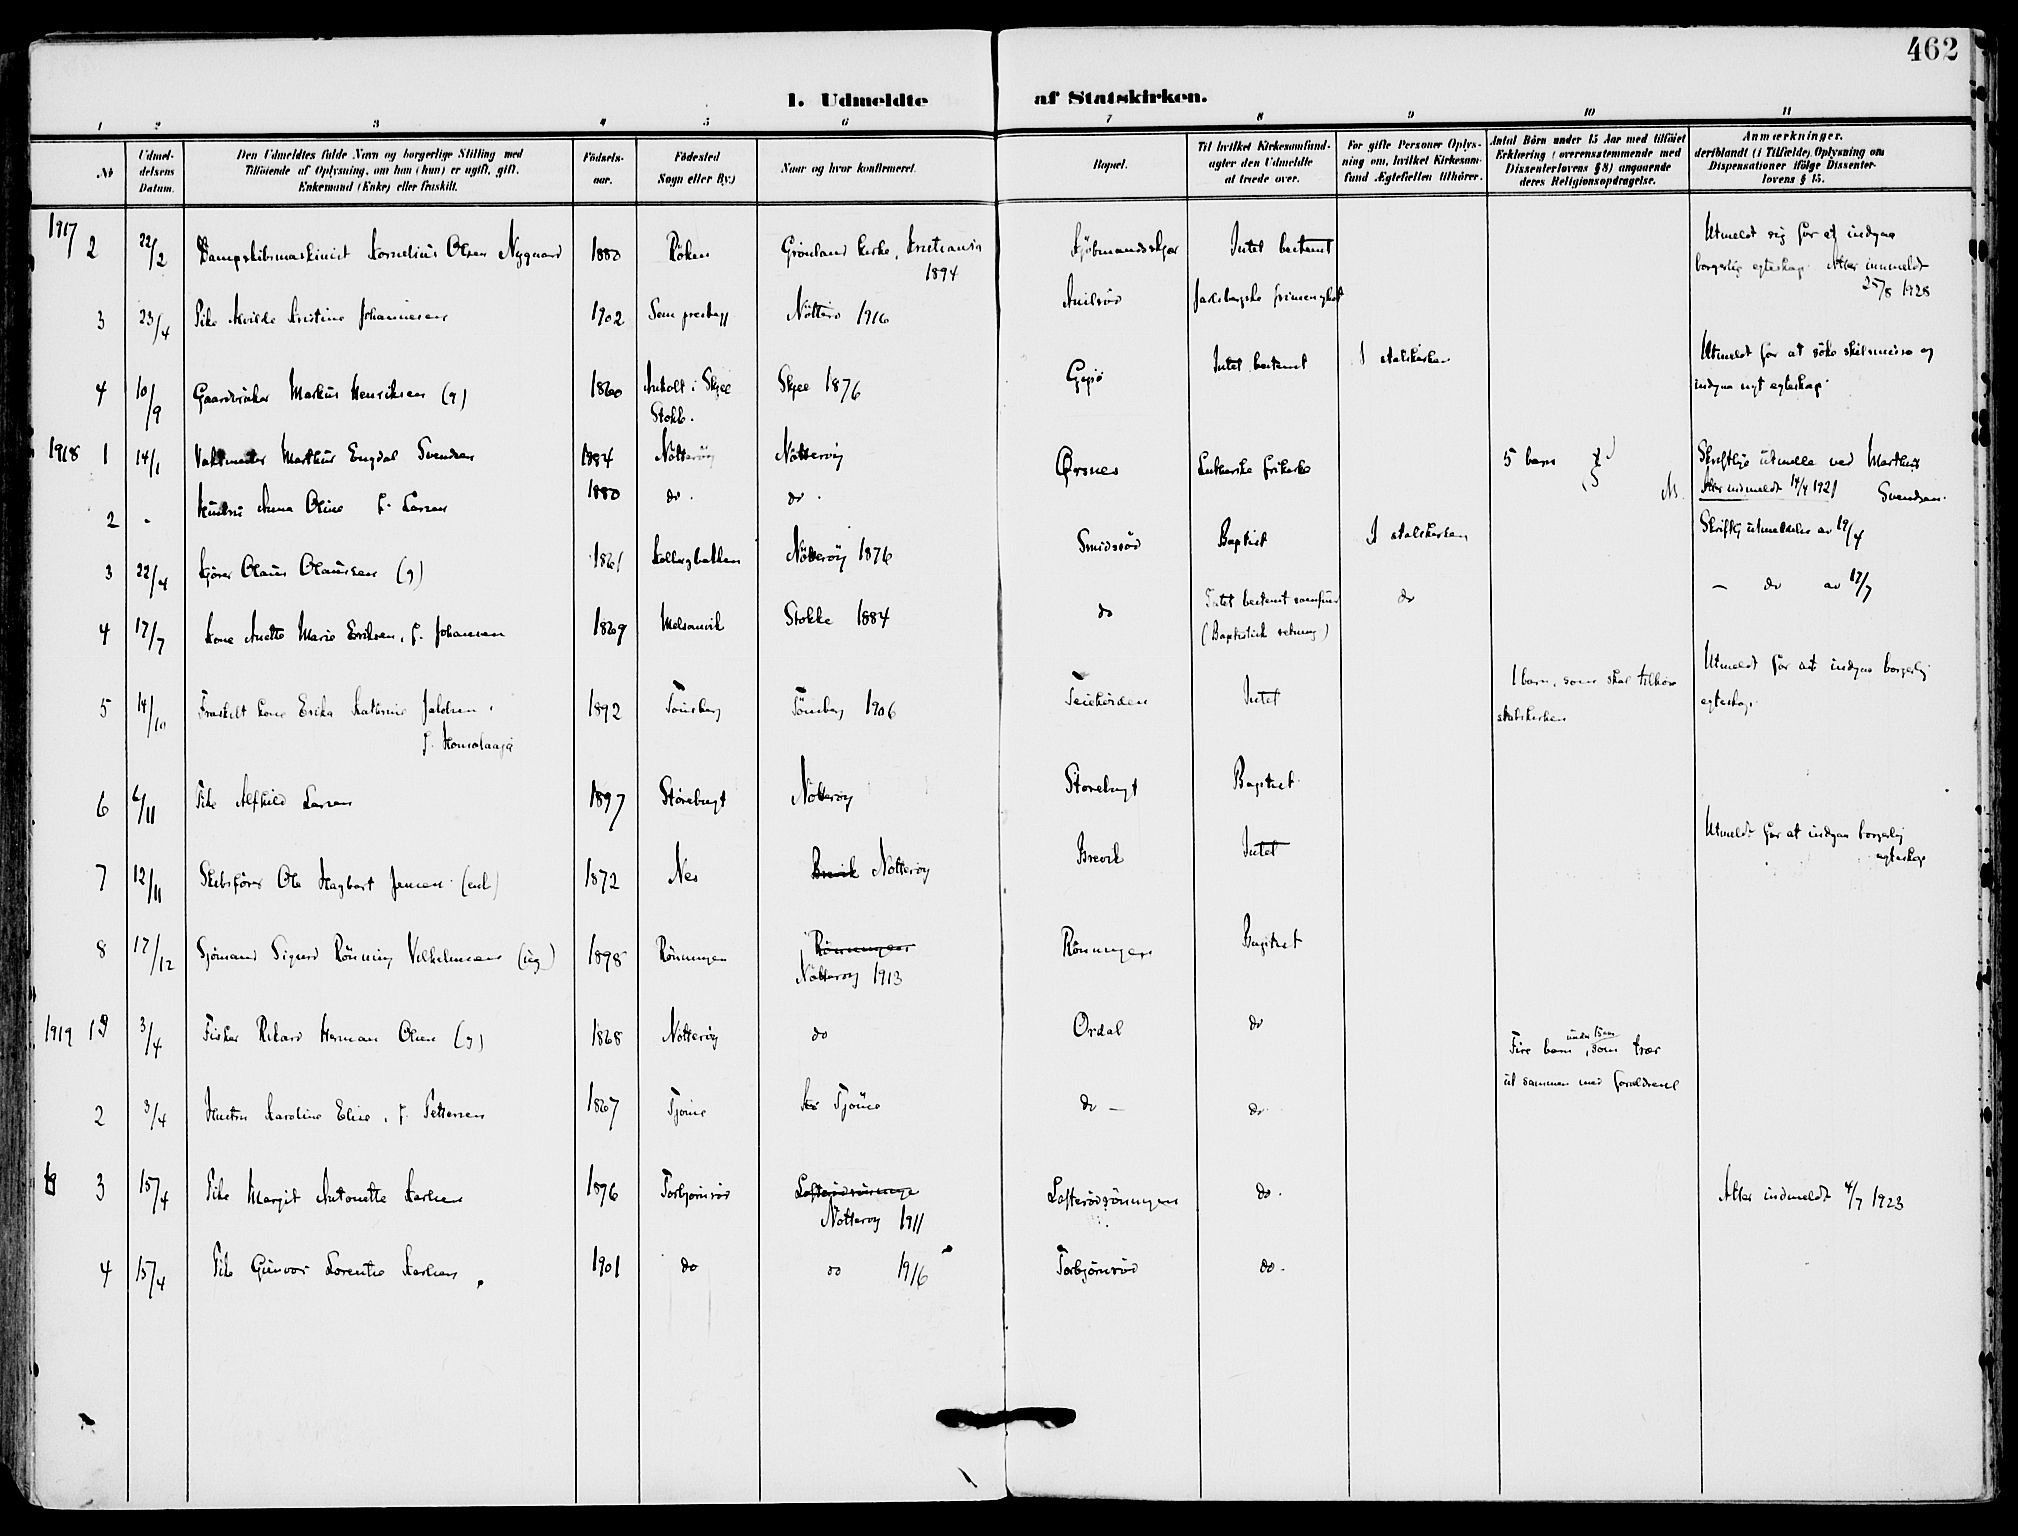 462
1. Udmeldte af Statskirken.
1 2 3 4 5 6 7 8 9 10 11
No
Udmel-
delsens
Datum.
Den Udmeldtes fulde Navn og borgerlige Stilling med
Tilföiende af Oplysning, om han (hun) er ugift, gift,
Enkemand (Enke) eller fraskilt.
Födsels-
aar.
Födested
Sogn eller By.)
Naar og hvor konfirmeret.
Bopæl.
Til hvilket Kirkesamfund-
agter den Udmeldte
at træde over.
For gifte Personer Oplys-
ning om, hvilket Kirkesam-
fund Ægtefællen tilhörer.
Antal Börn under 15 Aar med tilföiet
Erklæring (overensstemmende med
Dissenterlovens § 8) angaaende
deres Religionsopdragelse.
Anmærkninger,
deriblandt (i Tilfælde) Oplysning om
Dispensationer ifölge Dissenter-
lovens § 15.
1917 2 22/2 Dampskibsmaskinist Kornelius Olsen Nygaard 1880 Röken Grönland kirke, Kristiania 1894 Kjöbmandskjær Intet bestemt Utmeldt sig for at indgaa
borgerlig egteskap. Atter innmeldt
25/8 1928
3 23/4 Pike Kristine Johannesen 1902 Sem prestegj Nötterö 1916
4 10/9 Gaardbruker Markus Henriksen (g) 1860 i Skjee
Stokke. Skjee 1876 Gipö Intet bestemt I statskirken Utmeldt for at söke skilsmisse og
indgaa nyt egteskap.
1918 1 14/1 Marthur Engdal Svendsen 1884 Nötteröy Nötteröy Örsnes Lutherske frikirke 5 barn Skriftlig utmeldte ved Marthus
Svendsen.
Atter indmeldt 14/4 1921
2 - Hustru Anna Oline f. Larsen 1880 do. do.
3 22/4 Olaus Olaussen (g) 1861 Nötteröy 1876 Smidsröd Baptist I statskirken Skriftlig utmeldelse av 19/4
4 17/7 Kone Anette Marie Eriksen, f. Johansen 1869 Melsomvik Stokke 1884 do Intet bestemt samfund
(Baptistisk retning) do — do av 17/7
5 14/10 Fraskilt kone Erika Katrine
f. 1892 Tönsberg Tönsberg 1906 Intet 1 barn, som skal tilhöre
statskirken Utmeldt for at indgaa borgerlig
egteskap.
6 6/11 Pike Alfhild Larsen 1897 Storebugt Nötteröy Storebugt Baptist
7 12/11 Skibsförer Ole Hagbart Jensen (enk) 1872 Nes Brevik Nötteröy Brevik Intet Utmeldt for at indgaa borgerlig
egteskap
8 17/12 Sjömand Sigurd Rönning Vilhelmsen (ug) 1898 Rönningen Rönningen
Nötteröy 1913 Rönningen Baptist
1919 1 3/4 Fisker Rikard Herman Olsen (g) 1868 Nötteröy do Ordal do Fire barn under 15 aar, som træer
ut sammen med forældrene
2 3/4 Hustru Karoline Elise, f. Pettersen 1867 Tjöme Tjöme do — do
3 15/4 Pike Margit Antonette Karlsen 1896 Torbjörnröd Lofterödrönningen
Nötteröy 1911 Lofterödrönningen do. Atter indmeldt 4/7 1923
4 15/4 Pike Gunvor Lorentse Karlsen 1901 do do 1916 Torbjörnröd do.